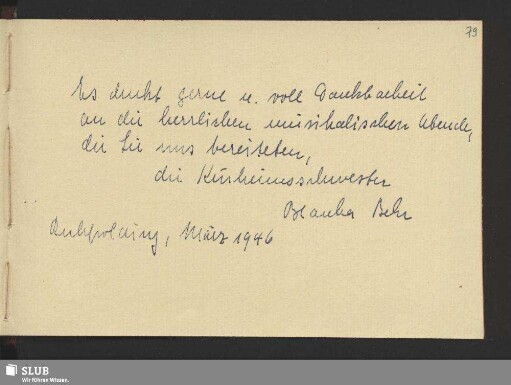 79
Es denkt gerne u. voll Dankbarkeit
an die herrlichen musikalischen Abende,
die Sie uns bereiteten,
die Kurheimsschwester
Blanka Behr
Ruhpolding, März 1946
SLUB
Wir führen Wissen.